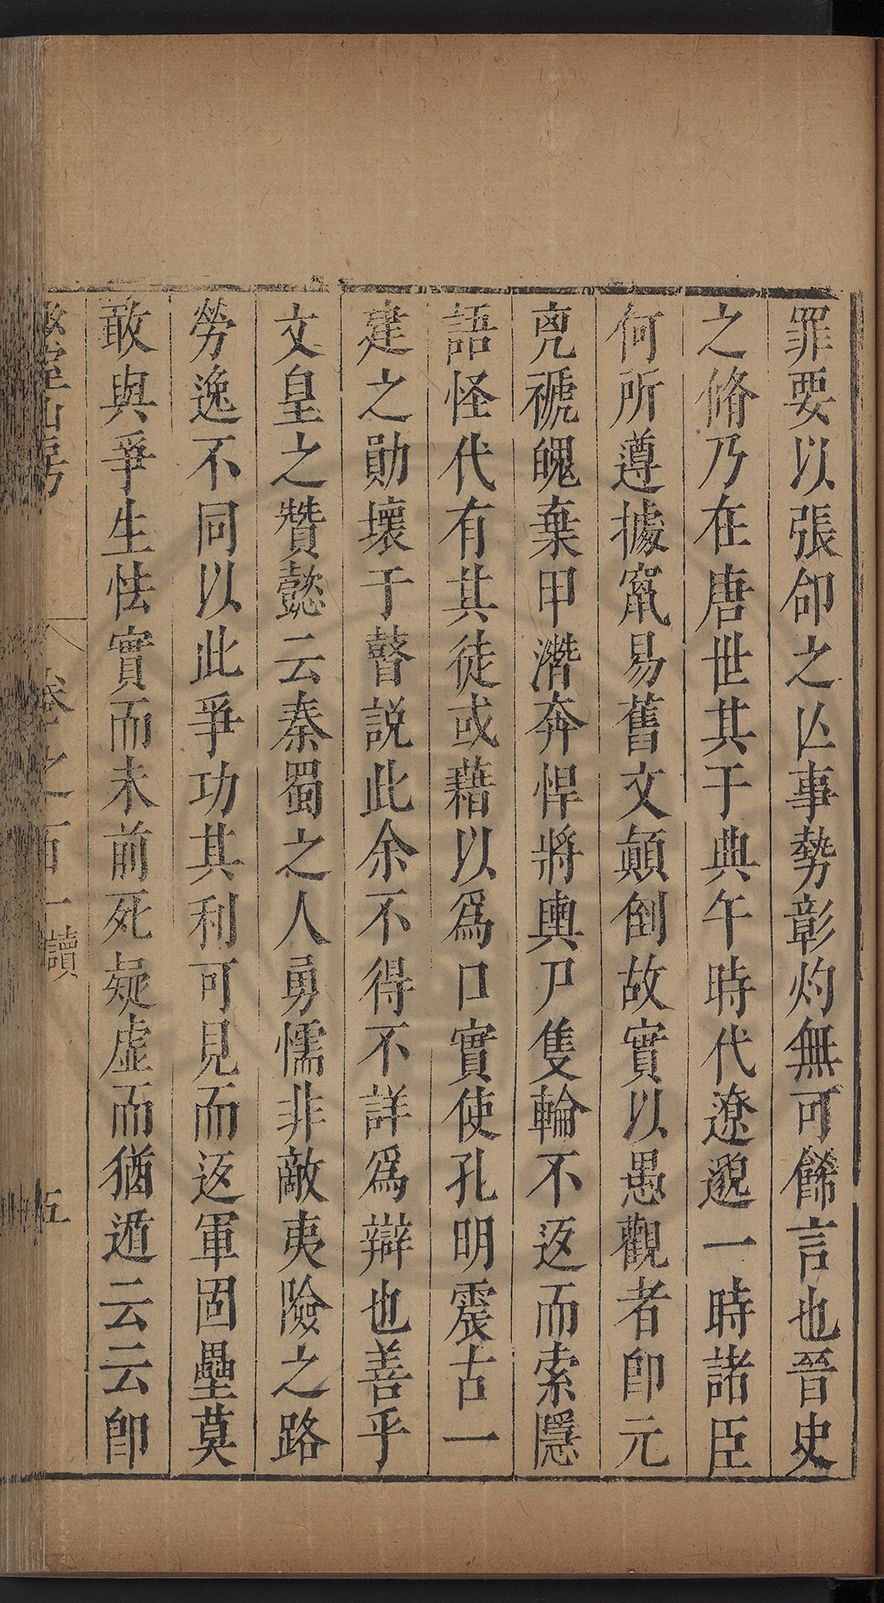 罪要以張郃之亾事勢彰灼無可餙言也晉史
之脩乃在唐世其于典午時代遼邈一時諸臣
何所遵據竄易舊文顛倒故實以愚觀者卽元
兇褫魄棄甲潛奔悍將輿尸隻輪不返而索隱
語怪代有其徒或藉以爲口實使孔明震古一
建之勛壞于瞽説此余不得不詳爲辯也善乎
文皇之贊懿云秦蜀之人勇懦非敵夷險之路
勞逸不同以此爭功其利可見而返軍固壘莫
敢與爭生怯實而未前死疑虛而猶遁云云卽
室山房 卷之百一 讀 五